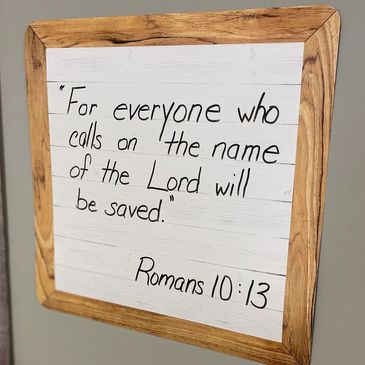 "For everyone who
calls on the name
of the Lord will
be saved."
Romans 10:13